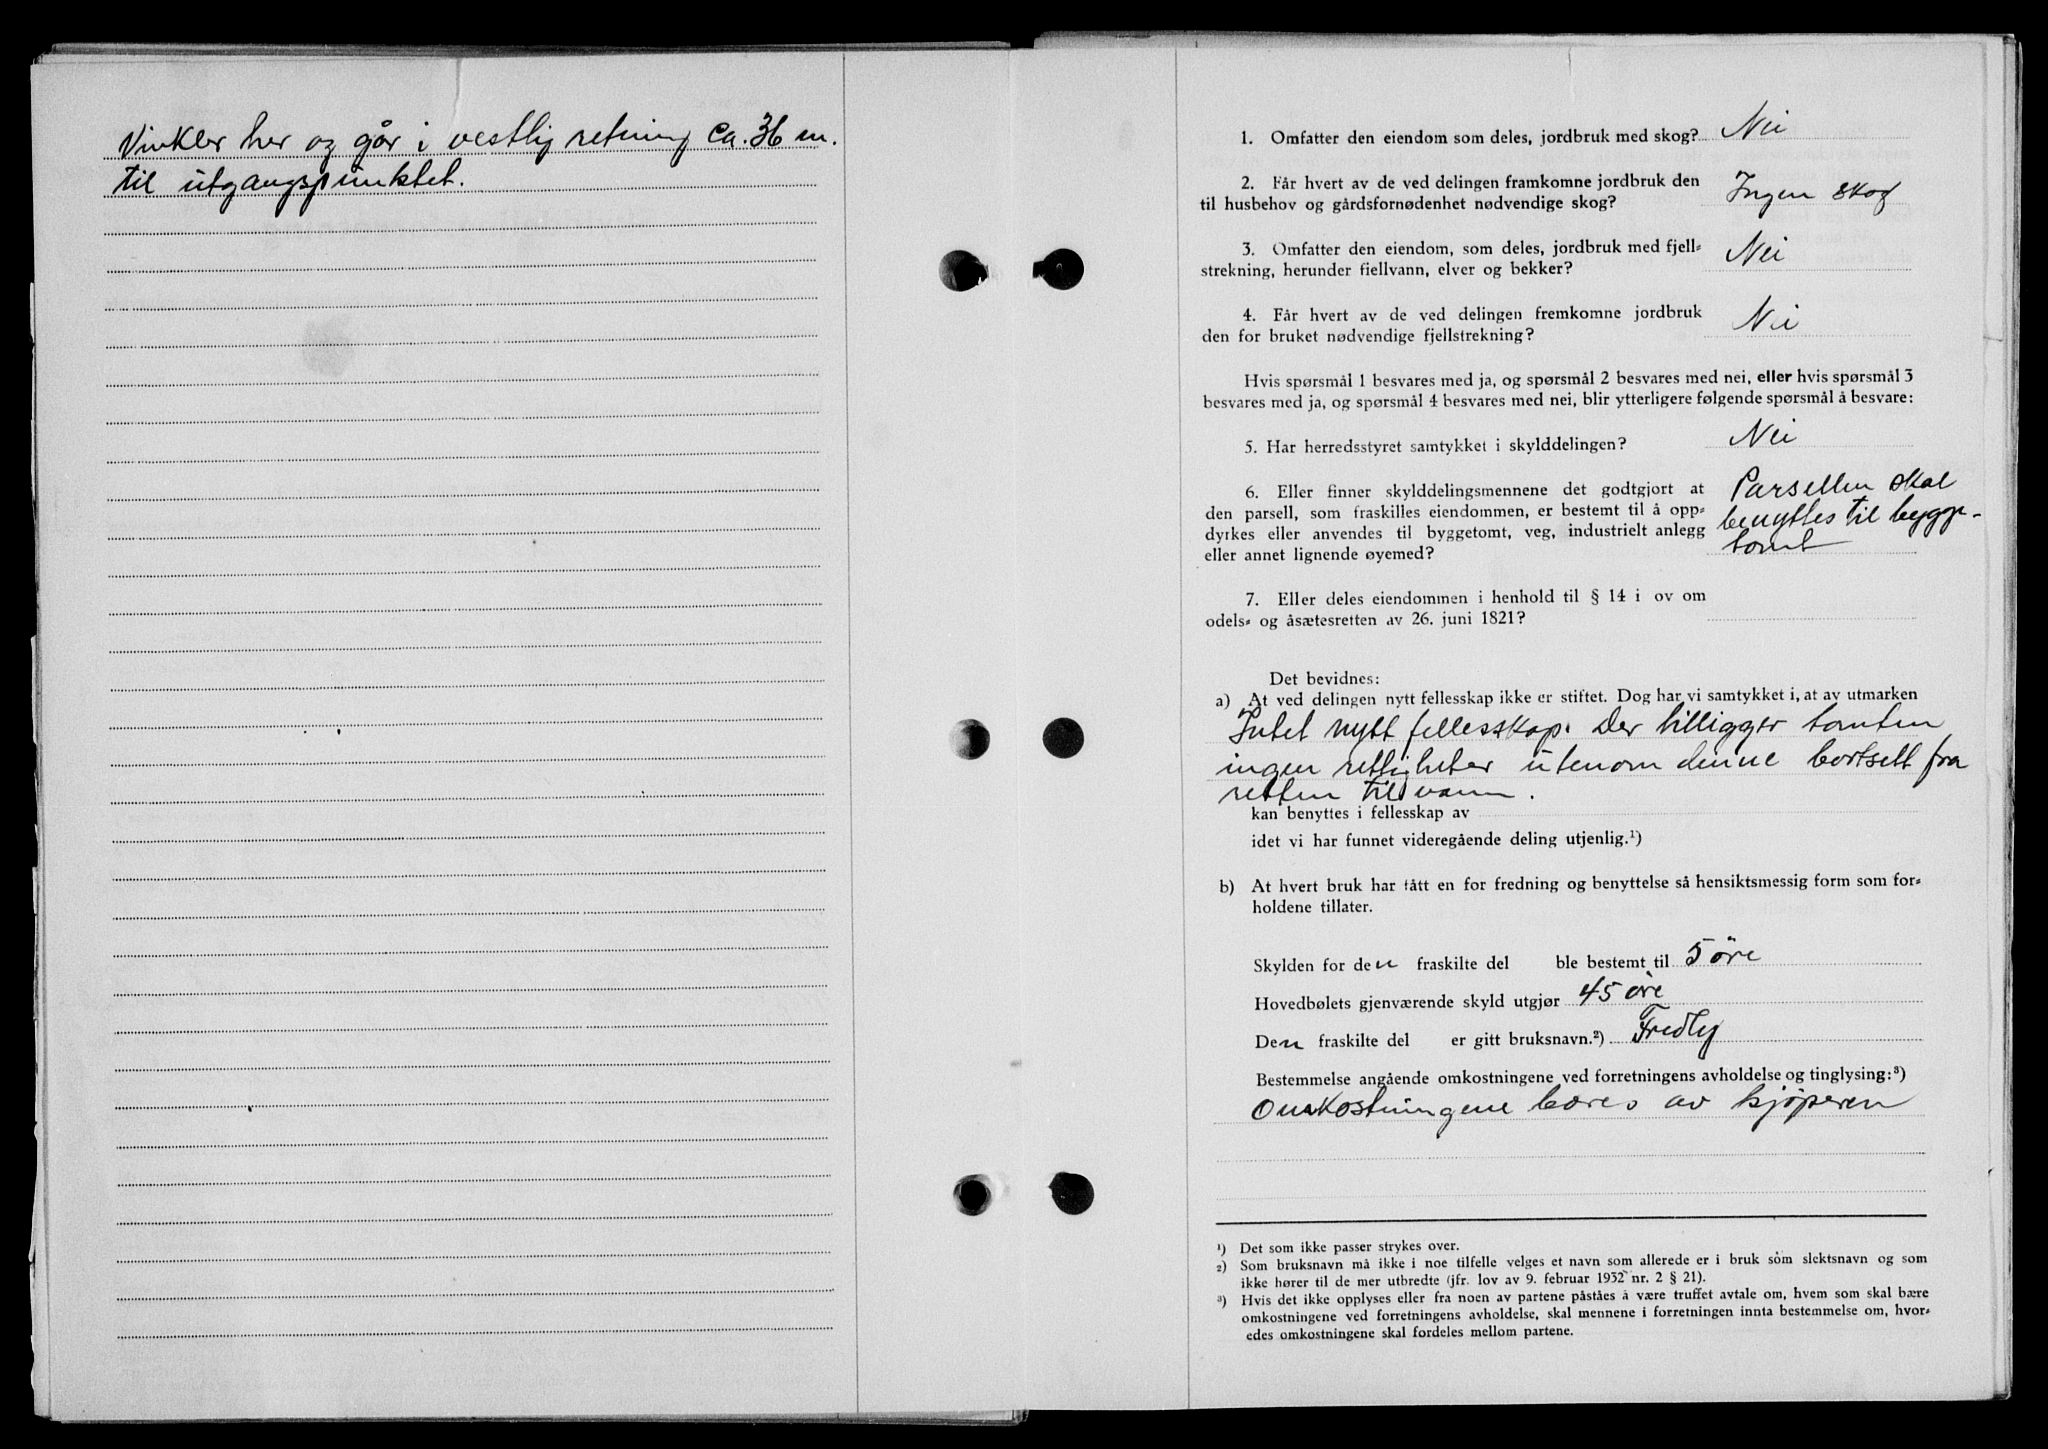 Vinkler her og går i vestlig retning ca. 36 m.
til utgangspunktet.
1. Omfatter den eiendom som deles, jordbruk med skog? Nei
2. Får hvert av de ved delingen framkomne jordbruk den
til husbehov og gårdsfornødenhet nødvendige skog? Ingen skog
3. Omfatter den eiendom, som deles, jordbruk med fjell=
strekning, herunder fiellvann, elver og bekker? Nei
4. Får hvert av de ved delingen fremkomne jordbruk
den for bruket nødvendige fjellstrekning? Nei
Hvis spørsmål 1 besvares med ja, og spørsmål 2 besvares med nei, eller hvis spørsmål 3
besvares med ja, og spørsmål 4 besvares med nei, blir ytterligere følgende spørsmål å besvare:
5. Har herredsstyret samtykket i skylddelingen? Nei
6. Eller finner skylddelingsmennene det godtgjort at
den parsell, som fraskilles eiendommen, er bestemt til å opp=
dyrkes eller anvendes til byggetomt, veg, industrielt anlegg
eller annet lignende øyemed?
Parsellen skal
benyttes til bygge-
tomt
7. Eller deles eiendommen i henhold til § 14 i ov om
odels= og åsætesretten av 26. juni 1821?
Det bevidnes:
a) At ved delingen nytt fellesskap ikke er stiftet. Dog har vi samtykket i, at av utmarken
Intet nytt fellesskap. Der tilligger tomten
ingen rettigheter utenom denne bortsett fra
retten til vann.
kan benyttes i fellesskap av
idet vi har funnet videregående deling utjenlig.¹)
b) At hvert bruk har fått en for fredning og benyttelse så hensiktsmessig form som for=
holdene tillater.
Skylden for den fraskilte del ble bestemt til 5 øre
Hovedbølets gjenværende skyld utgjør 45 øre
Den fraskilte del er gitt bruksnavn.²) Fredly
Bestemmelse angående omkostningene ved forretningens avholdelse og tinglysing:³)
Omkostningene bæres av kjøperen
¹) Det som ikke passer strykes over.
²) Som bruksnavn må ikke i noe tilfelle velges et navn som allerede er i bruk som slektsnavn og som
ikke hører til de mer utbredte (jfr. lov av 9. februar 1932 nr. 2 § 21).
³) Hvis det ikke opplyses eller fra noen av partene påståes å være truffet avtale om, hvem som skal bære
omkostningene ved forretningens avholdelse, skal mennene i forretningen innta bestemmelse om, hvor=
edes omkostningene skal fordeles mellom partene.